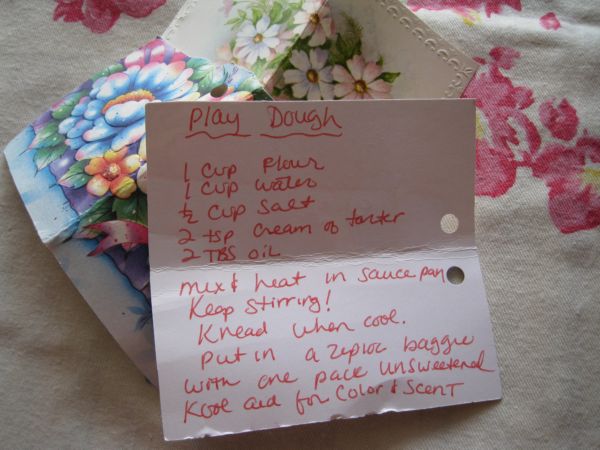 Play Dough
1 Cup Flour
1 Cup Water
½ Cup Salt
2 tsp Cream of tarter
2 TBS oil
mix & heat in sauce pan
Keep stirring!
Knead when cool.
put in a ziploc baggie
with one pack unsweetened
Kool aid for Color & Scent